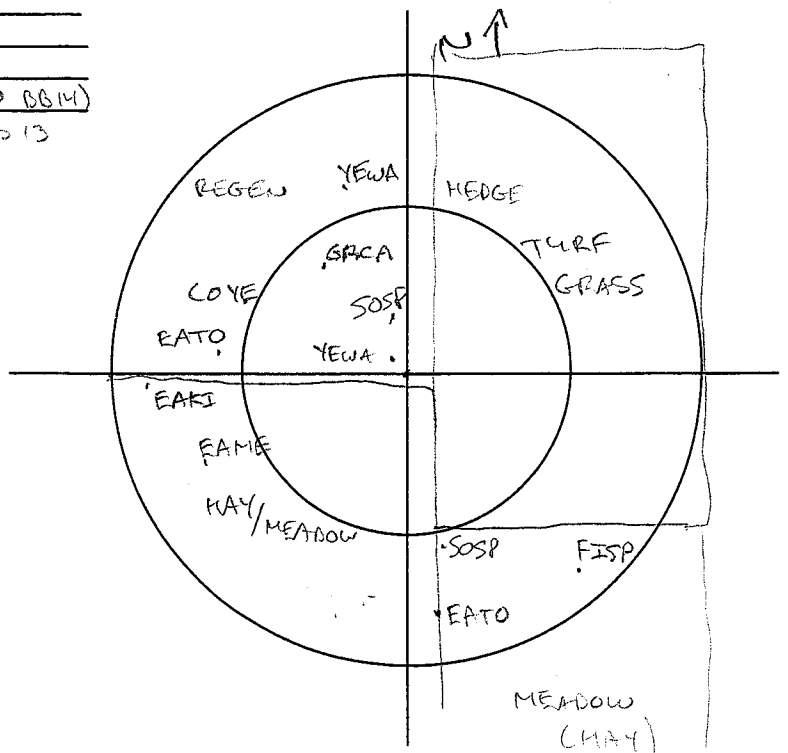 N ↑
BB14)
13
REGEN
YEWA
HEDGE
TURF
GRASS
GRCA
COYE
SOSP
EATO
YEWA
EAKI
EAME
HAY/MEADOW
SOSP
FISP
EATO
MEADOW
(HAY)